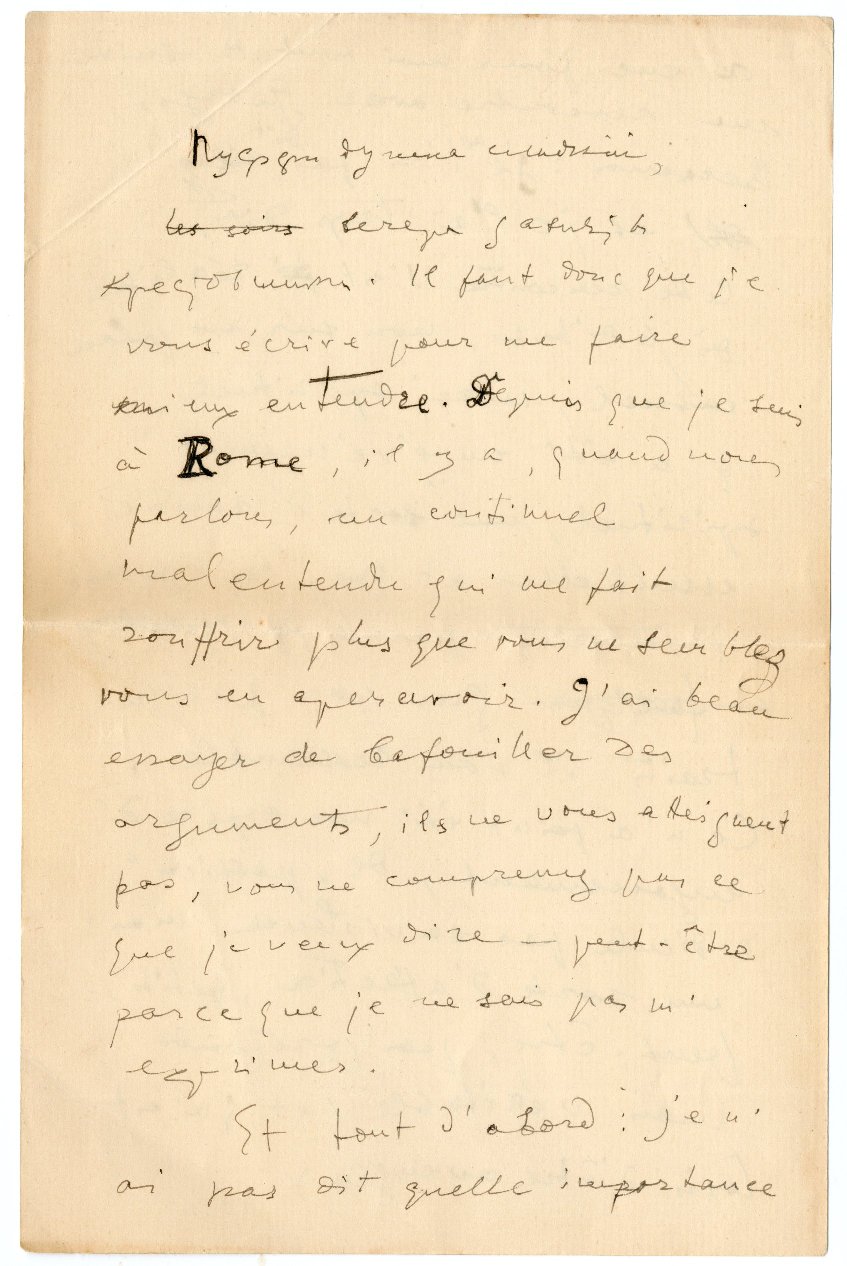 les soirs
. Il faut donc que je
vous écrive pour me faire
mieux entendre. Depuis que je suis
à Rome, il y a, quand nous
parlons, un continuel
malentendu qui me fait
souffrir plus que vous ne semblez
vous en apercevoir. J'ai beau
essayer de bafouiller des
arguments, ils ne vous ateignent
pas, vous ne comprenez pas ce
que je veux dire — peut-être
parce que je ne sais pas m'
exprimer.
Et tout d'abord : je n'
ai pas dit quelle importance